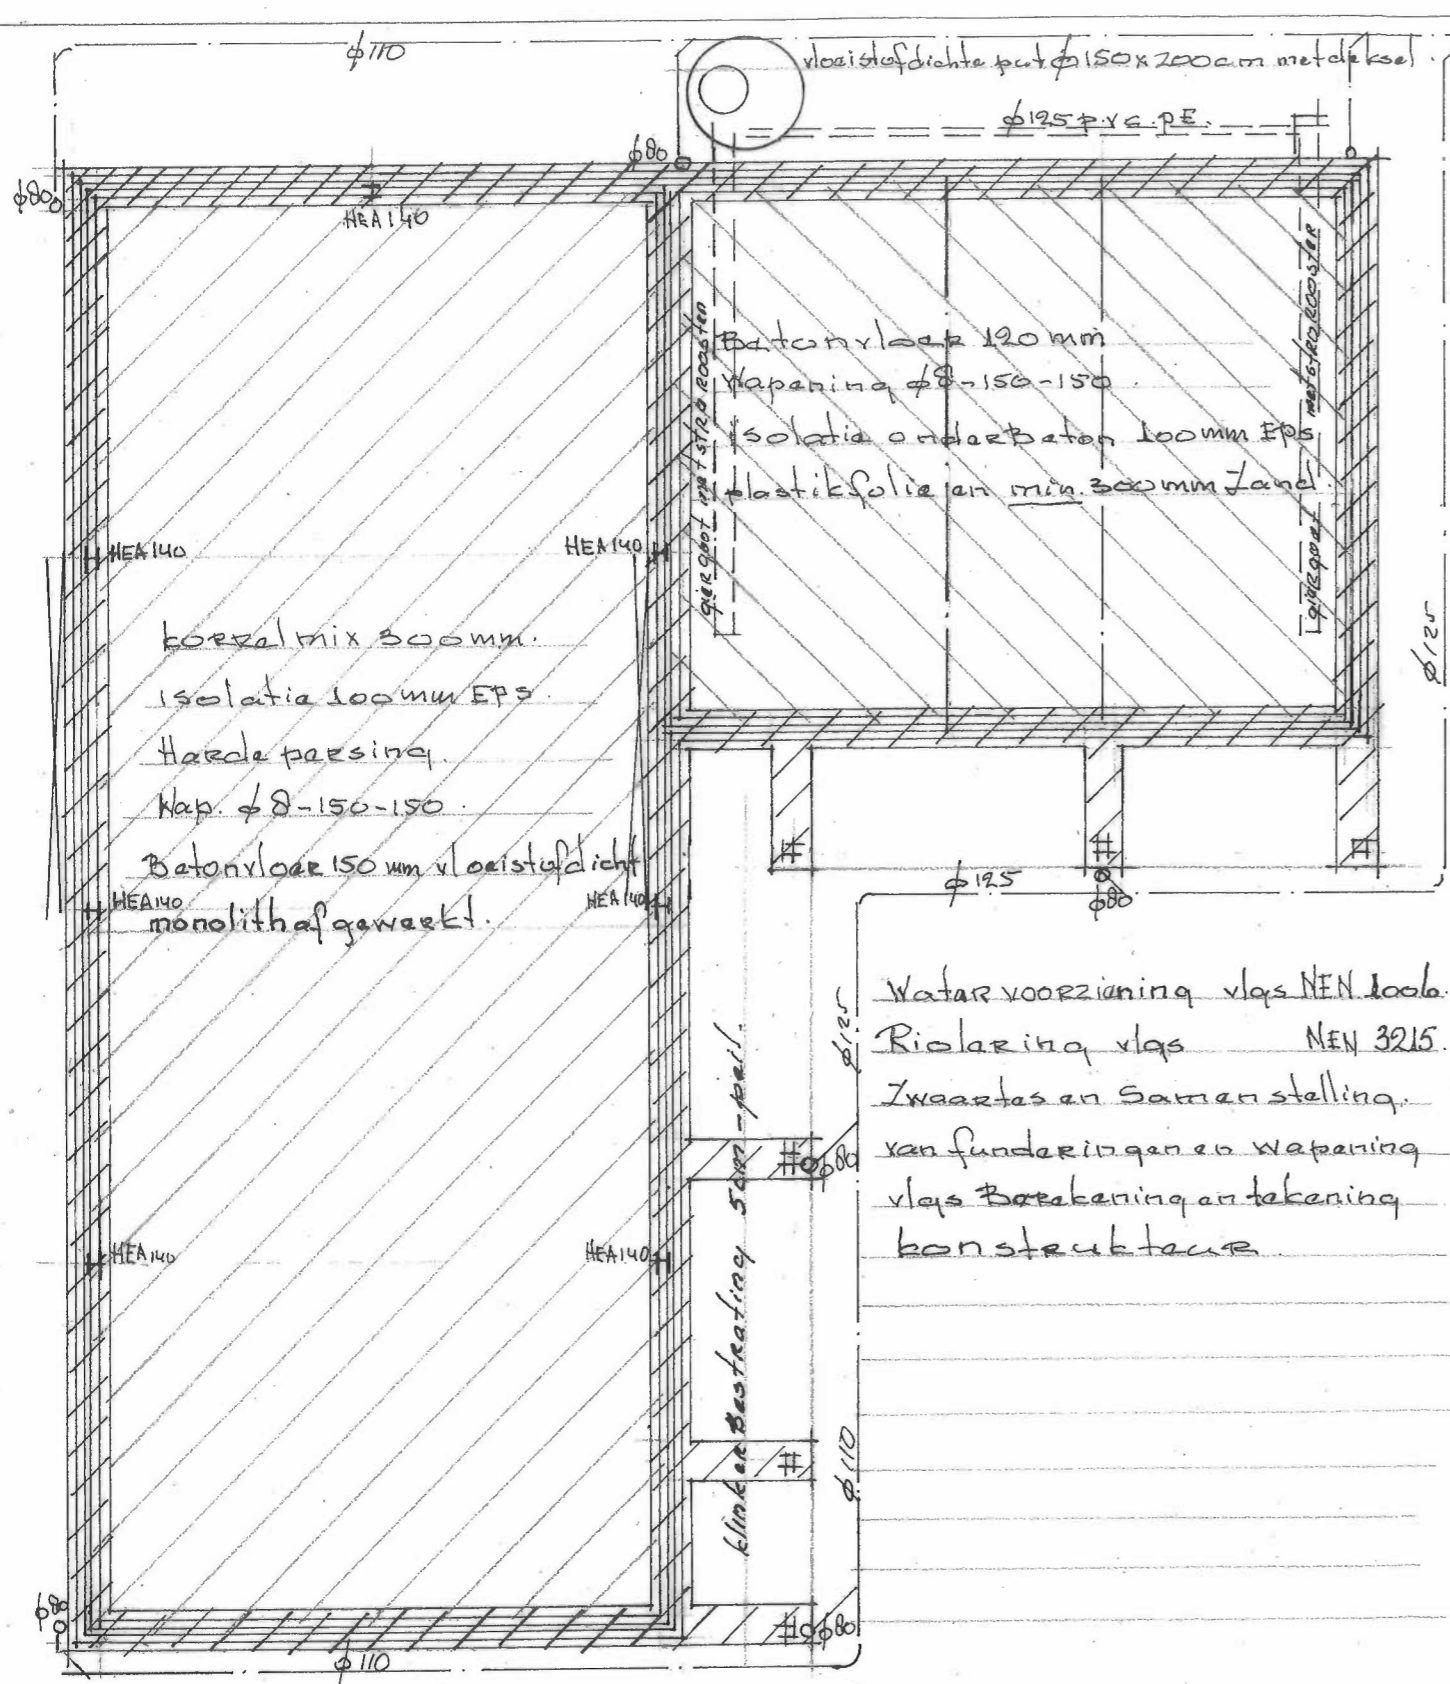 ϕ110
vloeistofdichte put ϕ150x200cm met deksel.
ϕ125 p.v.c. pE.
ϕ80
ϕ80
HEA140
giergoot met STRO ROOSTER
giergoot met STRO ROOSTER
Betonvloer 120 mm
Wapening ϕ8-150-150
isolatie onder Beton 100mm EPS
plastikfolie en min. 300mm Zand.
HEA140
HEA140
korrelmix 300mm.
isolatie 100mm EPS.
Harde persing.
Wap. ϕ8-150-150.
Betonvloer 150 mm vloeistofdicht
monolith afgewerkt.
HEA140
HEA140
ϕ125
ϕ125
ϕ80
Watervoorziening vlgs NEN 1006.
Riolering vlgs NEN 3215.
Zwaartes en Samenstelling.
van funderingen en wapening
vlgs Berekening en tekening
konstrukteur
ϕ125
ϕ80
HEA140
HEA140
klinker Bestrating 5cm -peil.
ϕ110
ϕ80
ϕ80
ϕ110